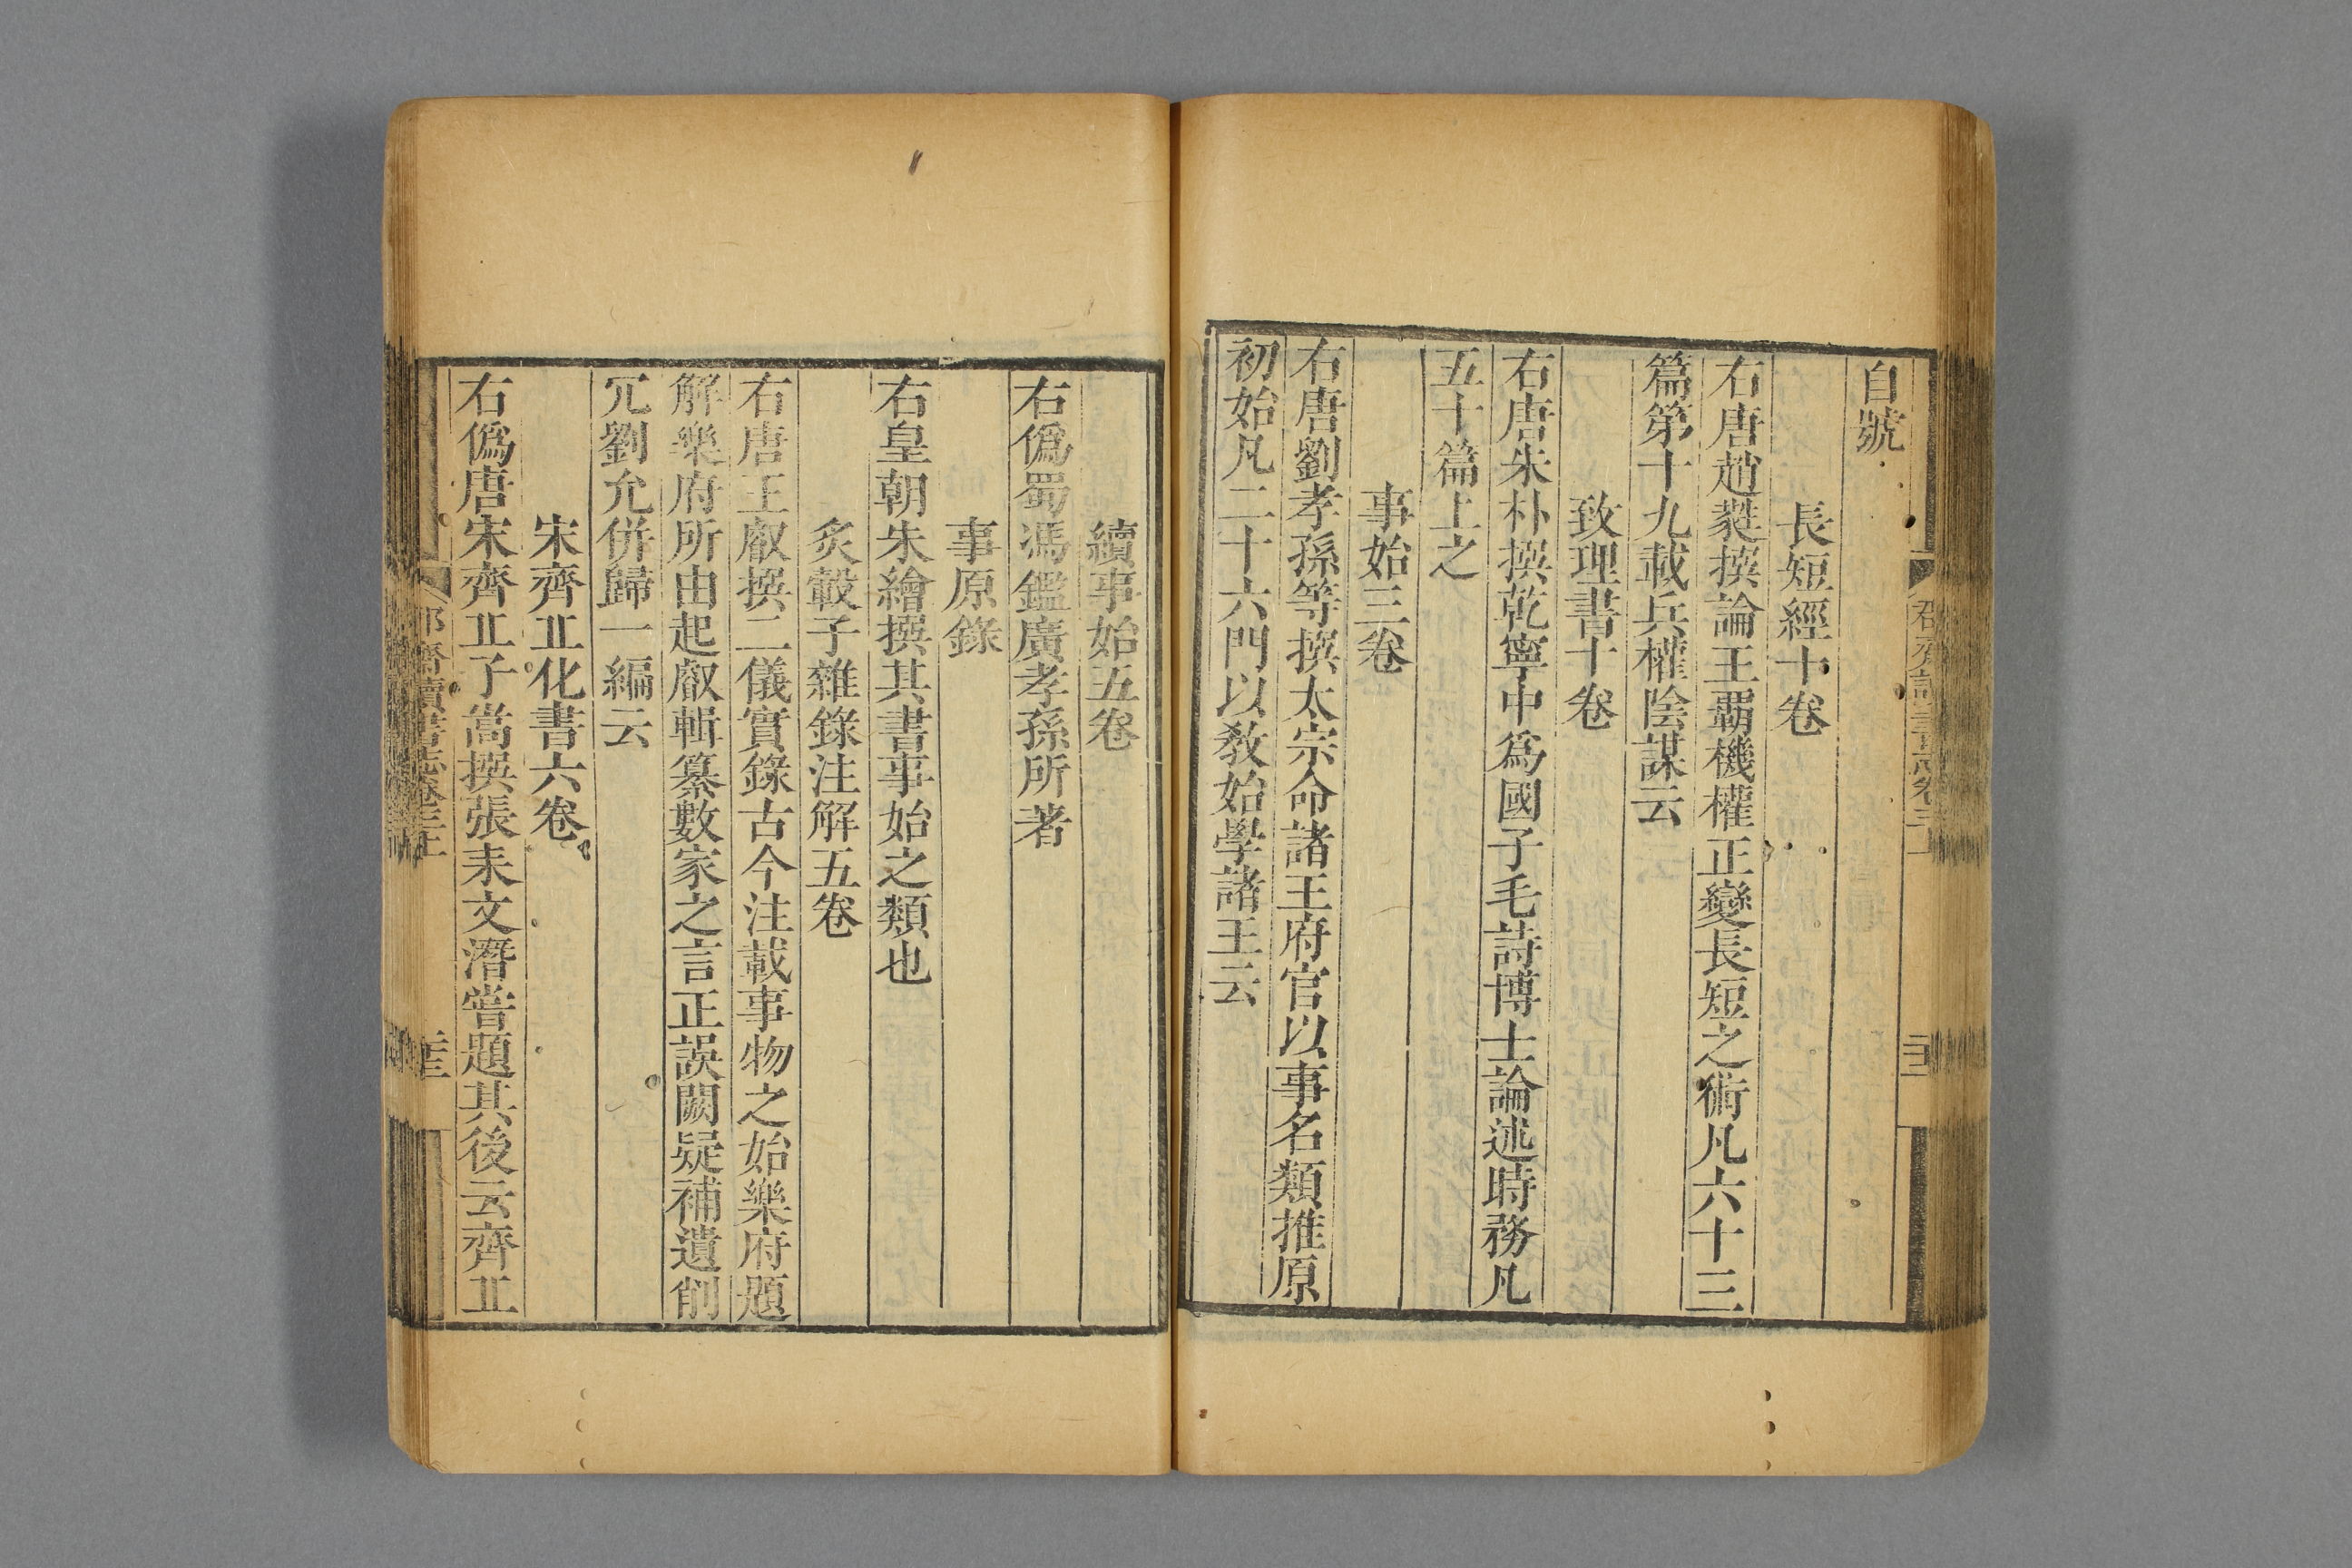 自號
長短經十卷
右唐趙蕤撰論王覇機權正變長短之術凡六十三
篇第十九載兵權陰謀云
致理書十卷
右唐朱朴撰乾寧中爲國子毛詩博士論述時務凡
五十篇上之
事始三卷
右唐劉孝孫等撰太宗命諸王府官以事名類推原
初始凡二十六門以敎始學諸王云
續事始五卷
右僞蜀馮鑑廣孝孫所著
事原錄
右皇朝朱繪撰其書事始之類也
炙轂子雜錄注解五卷
右唐王叡撰二儀實錄古今注載事物之始樂府題
解樂府所由起叡輯纂數家之言正誤闕疑補遺削
冗劉允併歸一編云
宋齊丘化書六卷
右僞唐宋齊丘子嵩撰張耒文潛嘗題其後云齊丘